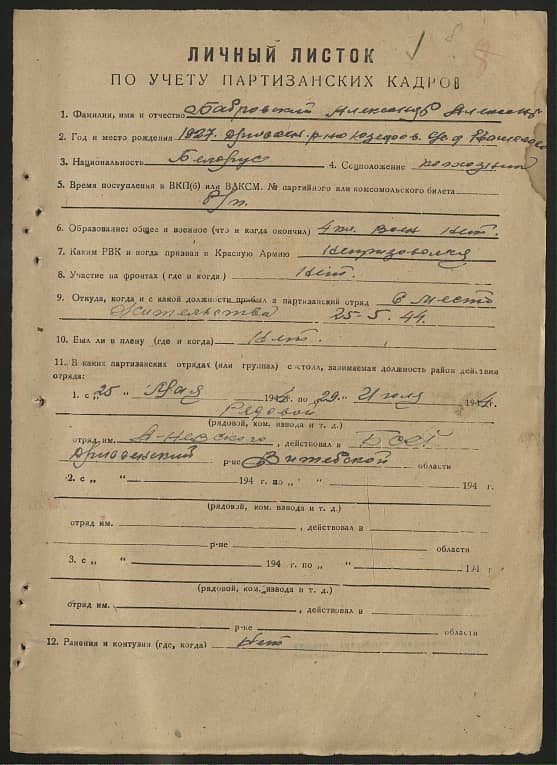 ЛИЧНЫЙ ЛИСТОК
ПО УЧЕТУ ПАРТИЗАНСКИХ КАДРОВ
1. Фамилия, имя и отчество Бабровский Александр
2. Год и место рождения 1927.
3. Национальность Белорус 4. Соцположение
5. Время поступления в ВКП(б) или ВЛКСМ. № партийного или комсомольского билета
б/п.
6. Образование: общее и военное (что и когда окончил) 4 кл. воен нет.
7. Каким РВК и когда призван в Красную Армию
8. Участие на фронтах (где и когда) Нет.
9. Откуда, когда и с какой должности прибыл в партизанский отряд С место
Жительства 25-5. 44.
10. Был ли в плену (где и когда) Нет.
11. В каких партизанских отрядах (или группах) состоял, занимаемая должность район действия
отряда:
1. с „25 “ Мая 1944 г. по „29 “ Июля 1944 г.
Рядовой
(рядовой, ком. взвода и т. д.)
отряд им. А-Невского, действовал в БССР
р-не Витебской области
2. с „ “ 194 г. по „ “ 194 г.
(рядовой, ком. взвода и т. д.)
отряд им. , действовал в
р-не области
3. с „ “ 194 г. по „ “ 194 г.
(рядовой, ком. взвода и т. д.)
отряд им. , действовал в
р-не области
12. Ранения и контузия (где, когда) Нет